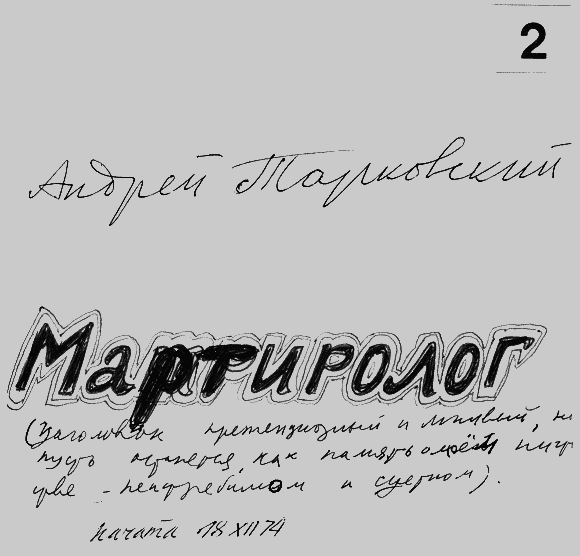 2
Андрей Тарковский
Мартиролог
(Заголовок претенциозный и лживый, но
пусть останется, как память о моём ничто-
- неистребимом и суетном).
начата 18 XII 74